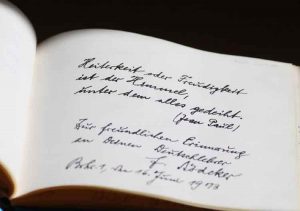 Heiterkeit oder Freudigkeit
ist der Himmel,
unter dem alles gedeiht.
(Jean Paul)
Zur freundlichen Erinnerung
an Deinen Deutschlehrer
den 16. Juni 19